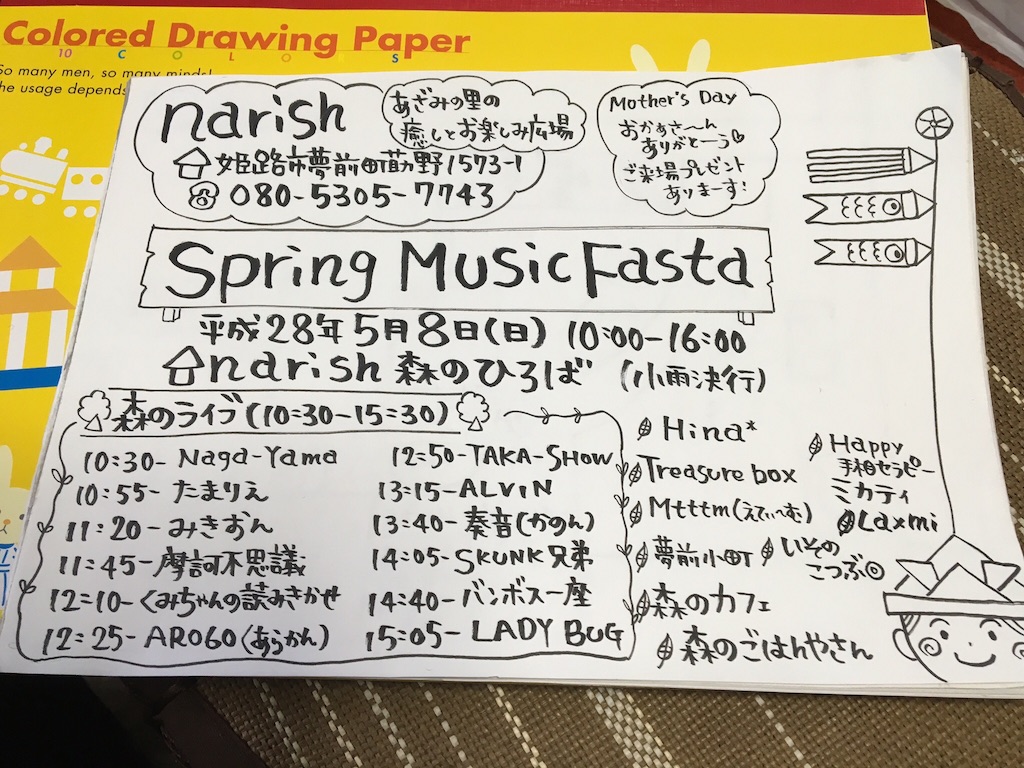 Colored Drawing Paper
10 COLORS
So many men, so many minds!
he usage depends
narish
あざみの里の
癒しとお楽しみ広場
姫路市夢前町莇野1573-1
080-5305-7743
Mother's Day
おかあさ〜ん
ありがとーう
ご来場プレゼント
ありまーす!
Spring Music Fasta
平成28年5月8日(日) 10:00-16:00
narish 森のひろば (小雨決行)
森のライブ(10:30-15:30)
10:30- Naga-Yama
10:55- たまりえ
11:20- みきおん
11:45- 摩訶不思議
12:10- くみちゃんの読みきかせ
12:25- ARO60(あらかん)
12:50- TAKA-SHOW
13:15- ALVIN
13:40- 奏音(かのん)
14:05- SKUNK兄弟
14:40- バンボス一座
15:05- LADY BUG
Hina*
Treasure box
Mtttm(えてぃーむ)
夢前小町
森のカフェ
森のごはんやさん
Happy
手相セラピー
ミカティ
Laxmi
いその
こつぶ◎